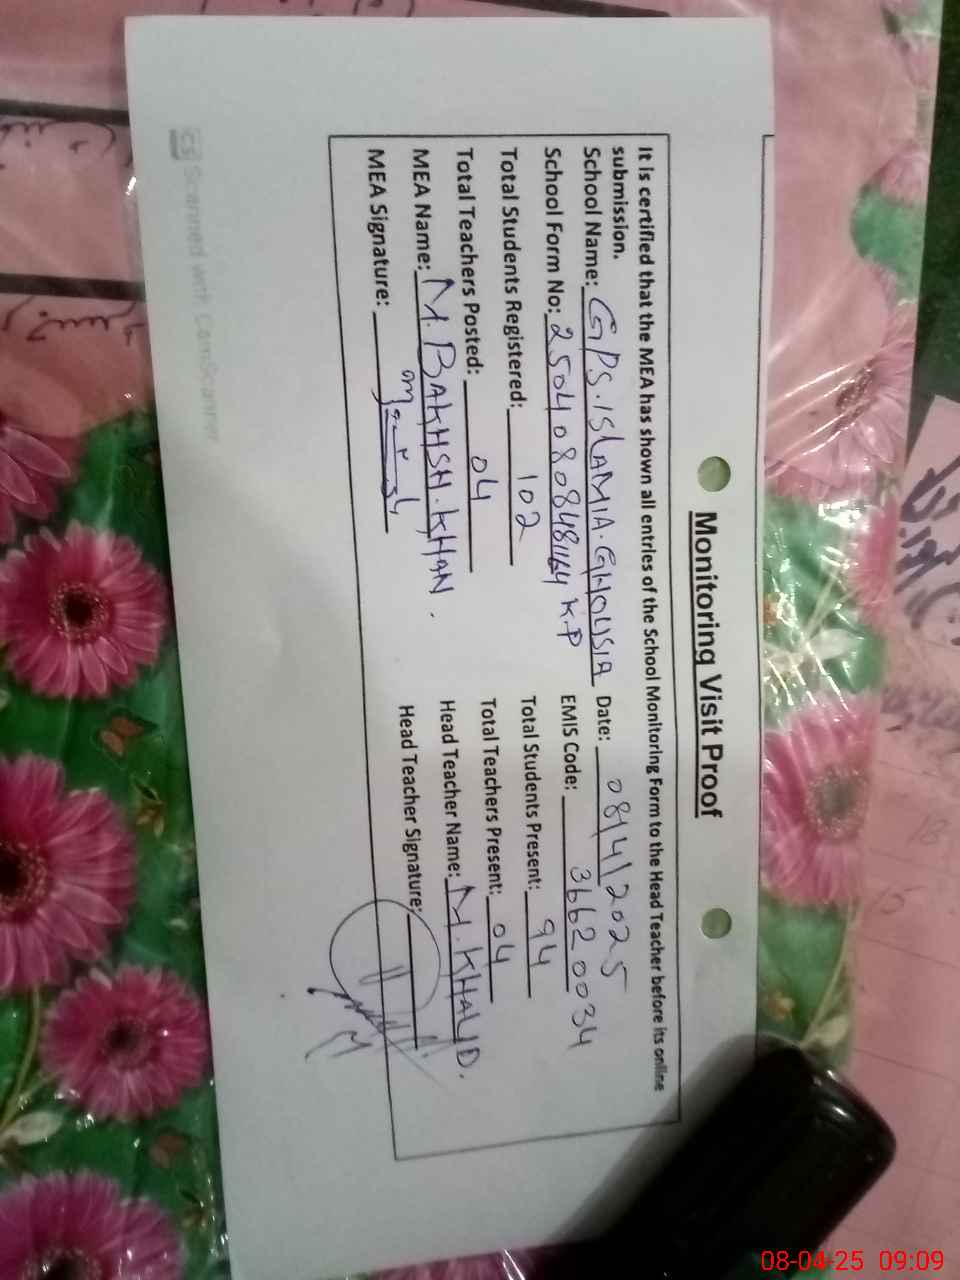 Monitoring Visit Proof
It is certified that the MEA has shown all entries of the School Monitoring Form to the Head Teacher before its online
submission.
School Name: GPS.ISLAMIA.GHOUSIA Date: 08/4/2025
School Form No: 2504080848164 KP EMIS Code: 36620034
Total Students Registered: 102 Total Students Present: 94
Total Teachers Posted: 04 Total Teachers Present: 04
MEA Name: M.BAKHSH.KHAN. Head Teacher Name: M.KHALID.
MEA Signature: Head Teacher Signature:
CS Scanned with CamScanner
08-04-25 09:09